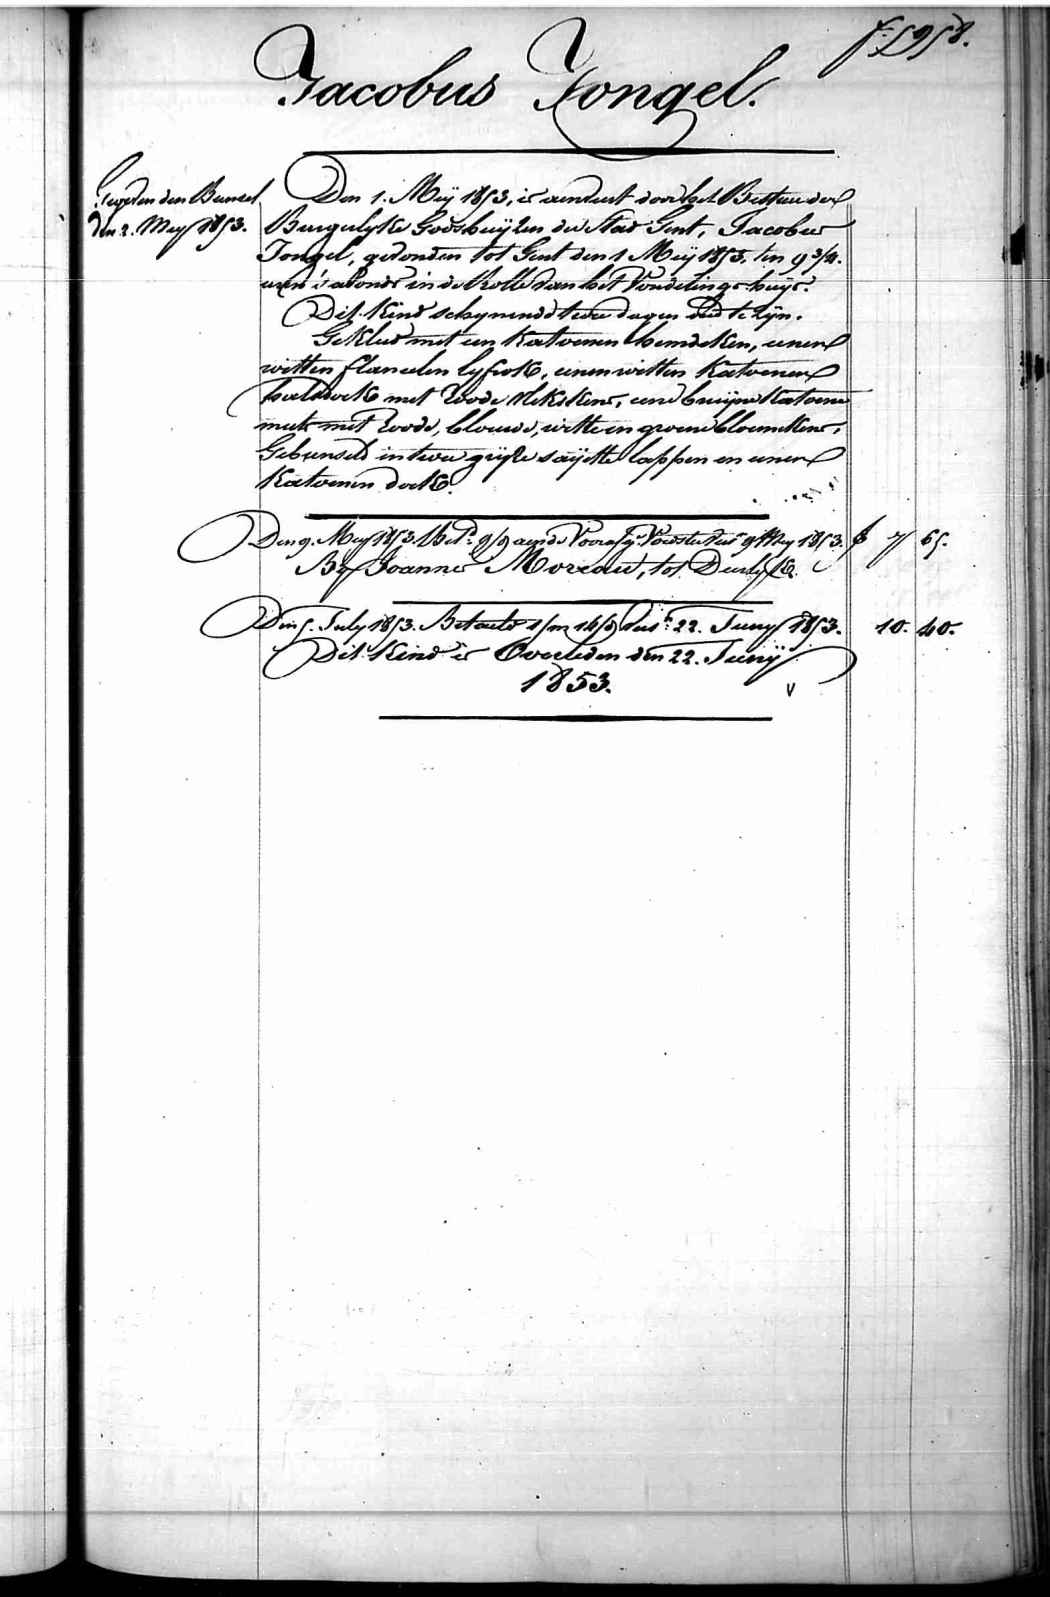 f: 5958.
Jacobus Jongel.
den Bunsel
den 2. Mey 1853.
Den 1. Meÿ 1853, is aenveert door het Bestuer der
Burgelyke Godshuijzen der Stad Gent, Jacobus
Jongel, gevonden tot Gent den 1 Meÿ 1853, ten 9 3/4.
uren 's avonds in de Rolle van het Vondelings-huijs.
Dit Kind schynende twee dagen oud te zÿn.
Gekleed met een Katoenen hemdeken, eenen
witten flanelen lyfrok, eenen witten Katoenen
halsdoek met roode vlekskens, eene bruijne Katoene
muts met roode, blouwe, witte en groene bloemekens,
Gebunseld in twee grijze saÿette lappen en eenen
Katoenen doek.
Den 9. Mey 1853. Bet. 9/9 aen de 9 Mey 1853. f 7 65.
By Joannes Moreau, tot Deurlyk.
Den 5. July 1853. Betaeld 1/m 14/d tus. 22. Juny 1853. 10. 40.
Dit Kind is Overleden den 22. Junÿ
1853. v